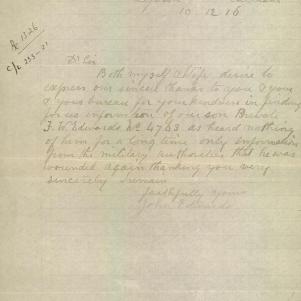 10.12.16
Dr Sir
Both myself & Wife desire to
express our sincel thanks to you & your
& your bureau for your kindness in finding
for us information of our son Private
J. W. Edwards No 4763 as heard nothing
of him for a long time only information
from the military authorities that he was
wounded again thanking you very
sincerely I remain
faithfully yours
John Edwards